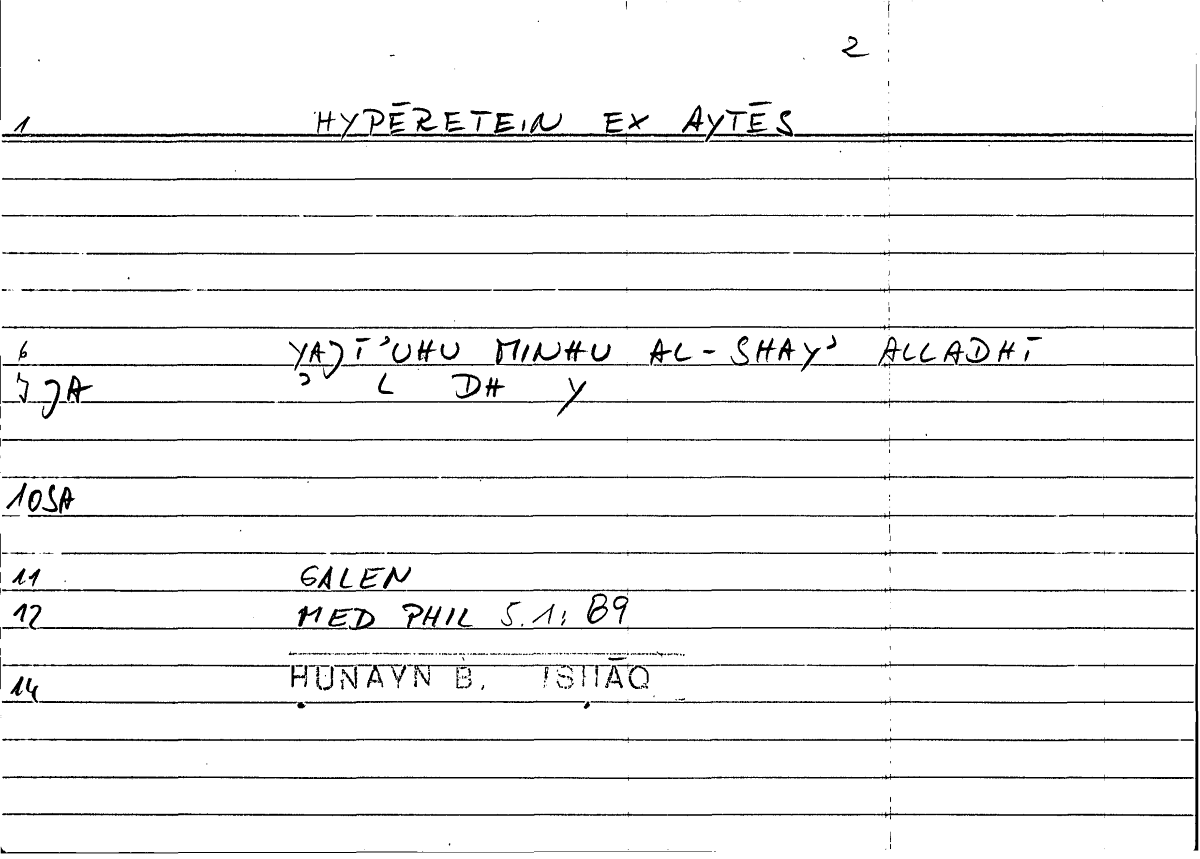 2
1 HYPĒRETEIN EX AYTĒS
6 YAJĪ'UHU MINHU AL-SHAY' ALLADHĪ
JA ' L DH Y
10 SA
11 GALEN
12 MED PHIL 5.1; 89
14 ḤUNAYN B. ISḤĀQ